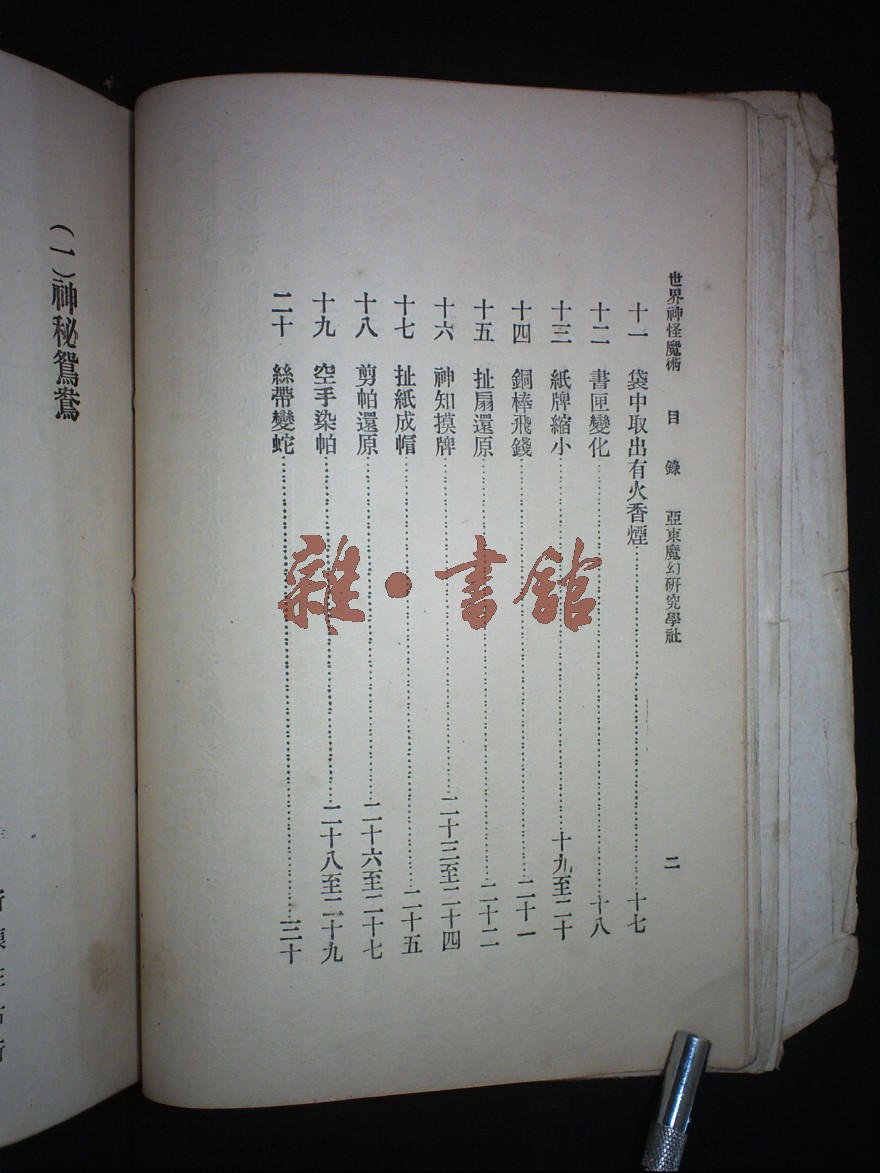 世界神怪魔術　目　錄　亞東魔幻研究學社　二
十一　袋中取出有火香煙……十七
十二　書匣變化……十八
十三　紙牌縮小……十九至二十
十四　銅棒飛錢……二十一
十五　扯扇還原……二十二
十六　神知摸牌……二十三至二十四
十七　扯紙成帽……二十五
十八　剪帕還原……二十六至二十七
十九　空手染帕……二十八至二十九
二十　絲帶變蛇……三十
(一)神秘鴛鴦
雜·書館